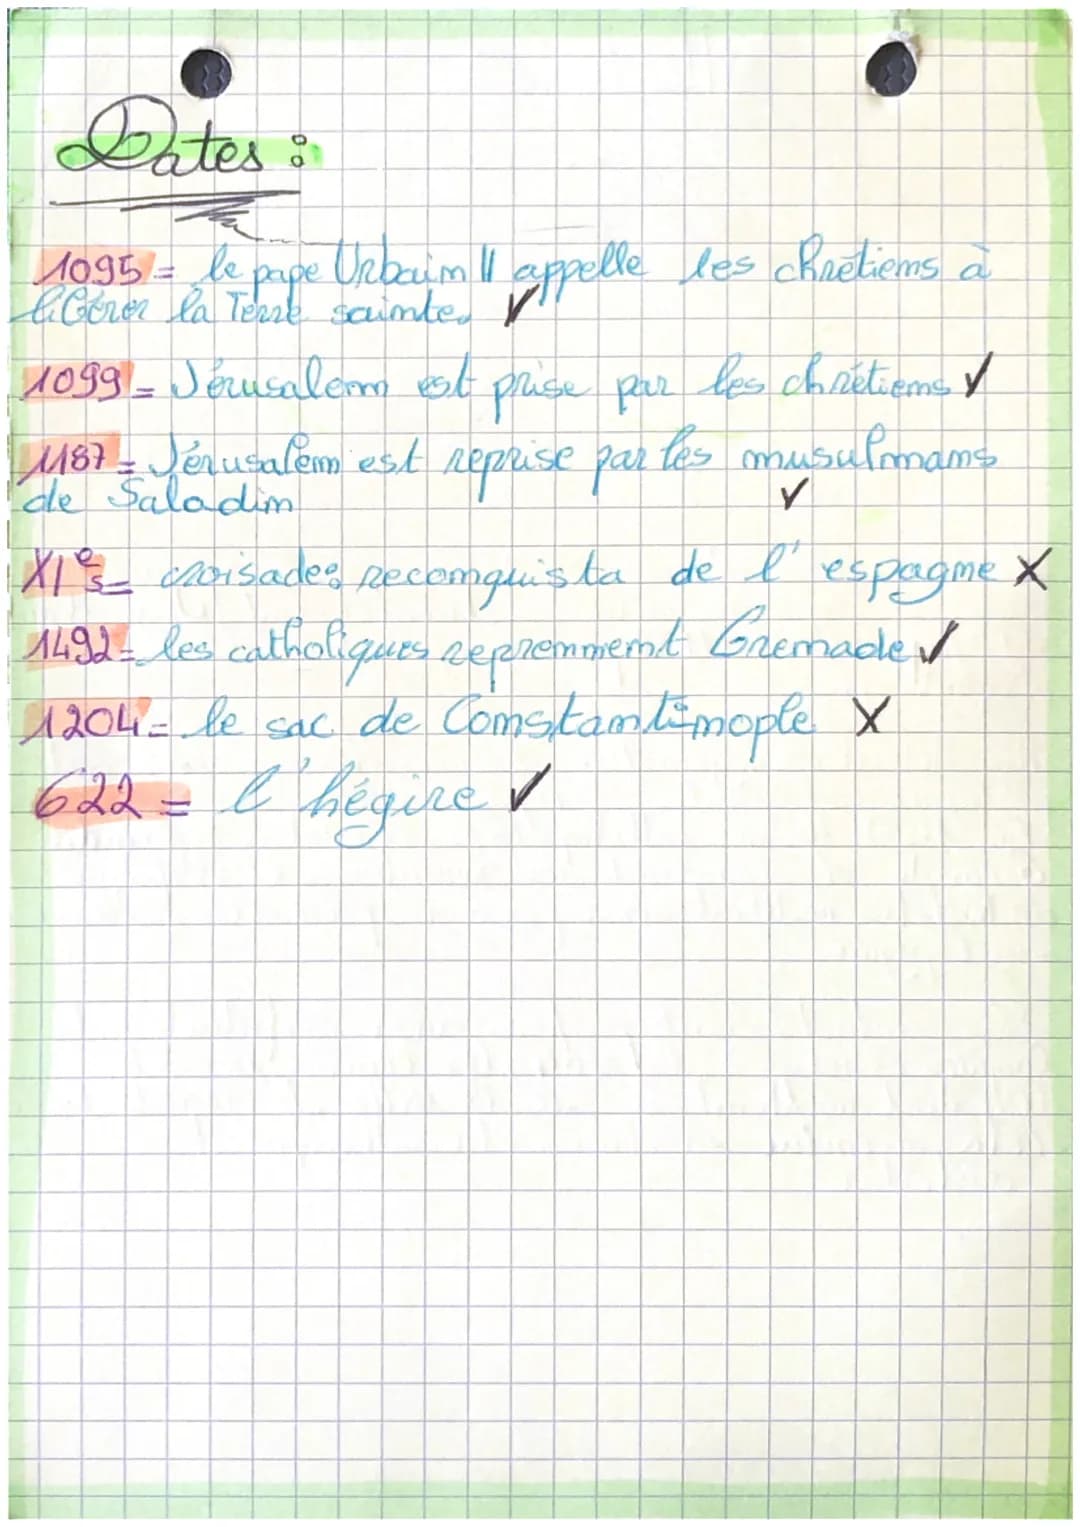 Dates :
1095 = le pape Urbain II appelle les chrétiens à
libérer la Terre sainte. ✓
1099 = Jérusalem est prise par les chrétiens ✓
1187 = Jérusalem est reprise par les musulmans
de Saladin ✓
XIe s = croisades reconquista de l'espagne X
1492 = les catholiques reprennent Grenade ✓
1204 = le sac de Constantinople X
622 = l'hégire ✓